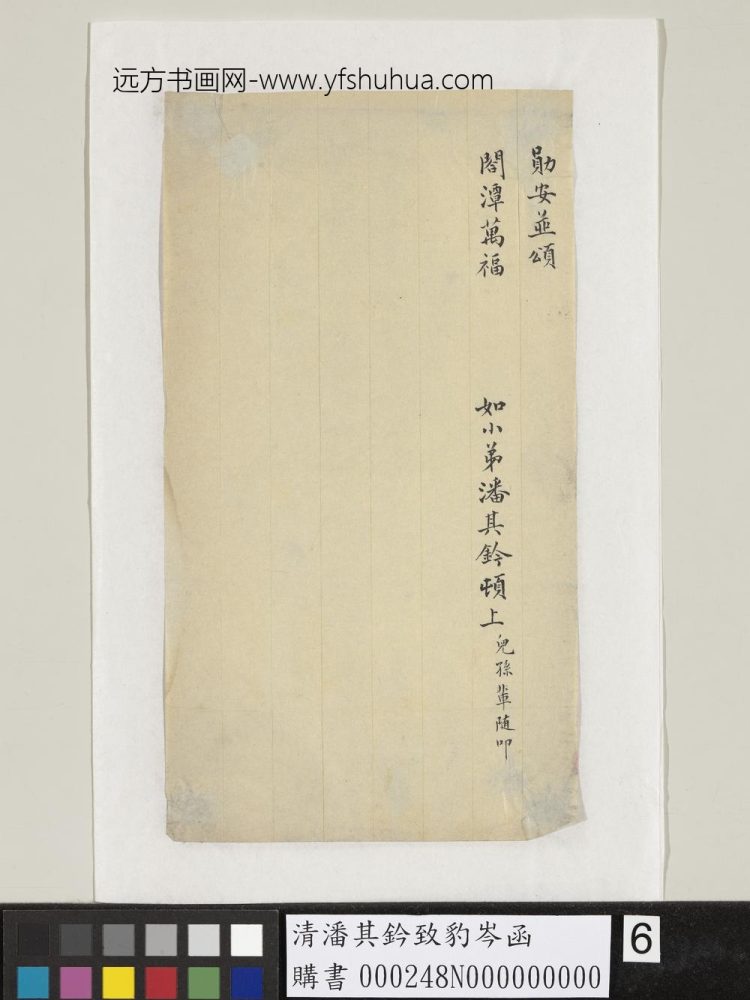 远方书画网-www.yfshuhua.com
勛安並頌
閤潭萬福
如小弟潘其鈐頓上兒孫輩随叩
清潘其鈐致豹岑函
購書 000248N000000000
6